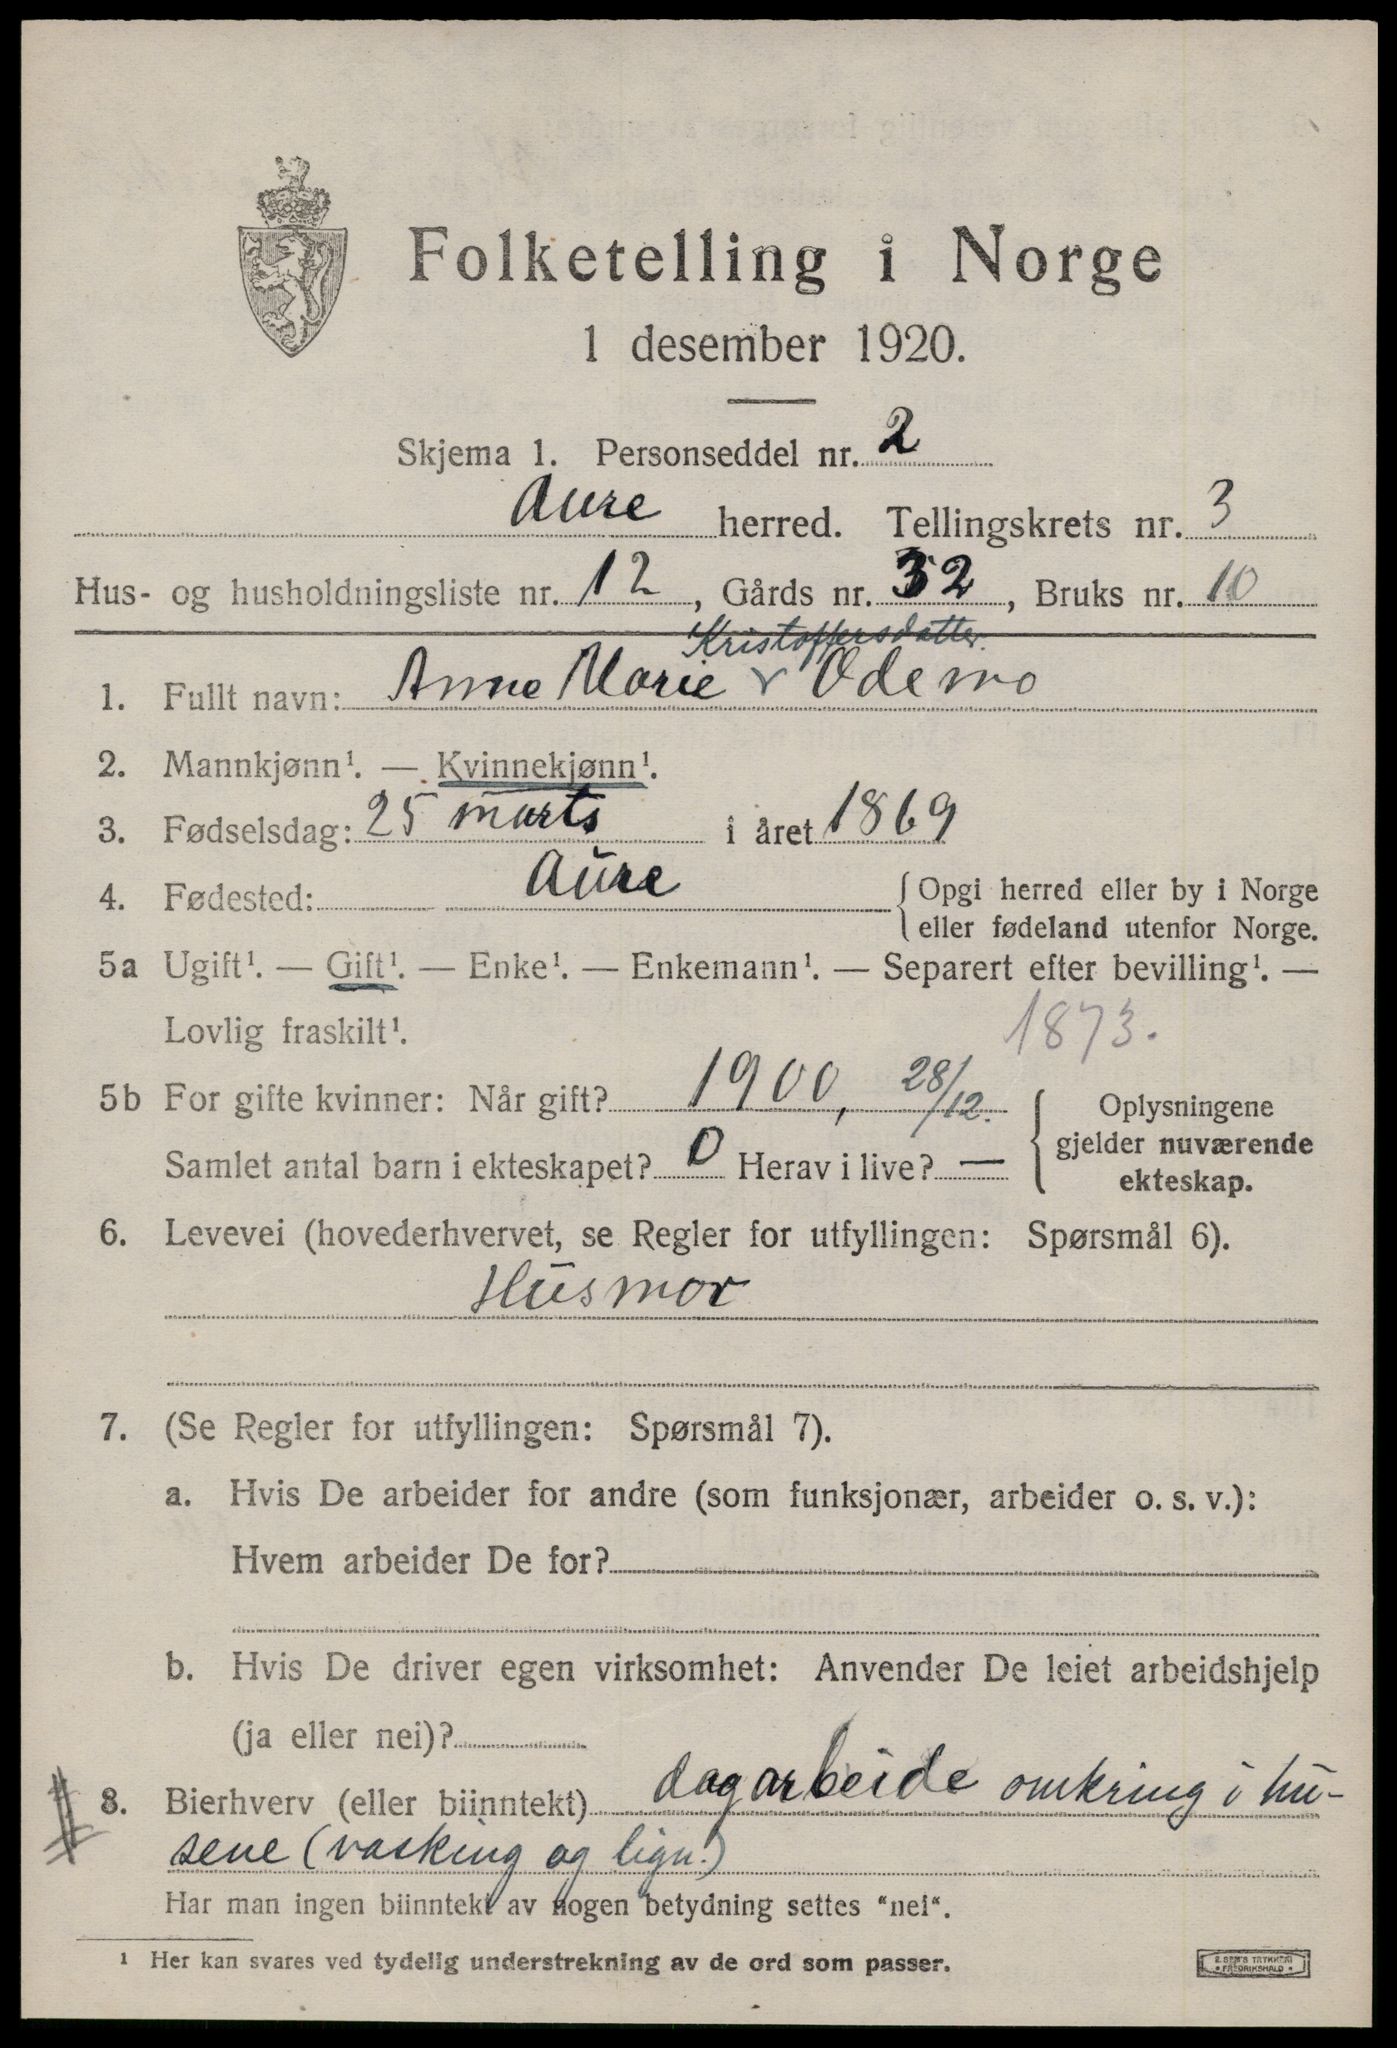 Folketelling i Norge
1 desember 1920.
Skjema 1. Personseddel nr. 2
Aure herred. Tellingskrets nr. 3
Hus- og husholdningsliste nr. 12, Gårds nr. 32, Bruks nr. 10
Kristoffersdatter.
1. Fullt navn: Anne Marie v Ödemo
2. Mannkjønn¹. — Kvinnekjønn¹.
3. Fødselsdag: 25 marts i året 1869
4. Fødested: Aure { Opgi herred eller by i Norge
eller fødeland utenfor Norge.
5a Ugift¹. — Gift¹. — Enke¹. — Enkemann¹. — Separert efter bevilling¹. —
Lovlig fraskilt¹. 1873.
5b For gifte kvinner: Når gift? 1900, 28/12. { Oplysningene
gjelder nuværende
Samlet antal barn i ekteskapet? 0 Herav i live? —
ekteskap.
6. Levevei (hovederhvervet, se Regler for utfyllingen: Spørsmål 6).
Husmor
7. (Se Regler for utfyllingen: Spørsmål 7).
a. Hvis De arbeider for andre (som funksjonær, arbeider o. s. v.):
Hvem arbeider De for?
b. Hvis De driver egen virksomhet: Anvender De leiet arbeidshjelp
(ja eller nei)?
# 8. Bierhverv (eller biinntekt) dagarbeide omkring i hu-
sene (vasking og lign.)
Har man ingen biinntekt av nogen betydning settes "nei".
¹ Her kan svares ved tydelig understrekning av de ord som passer.
E. SEM'S TRYKKERI
• FREDRIKSHALD •